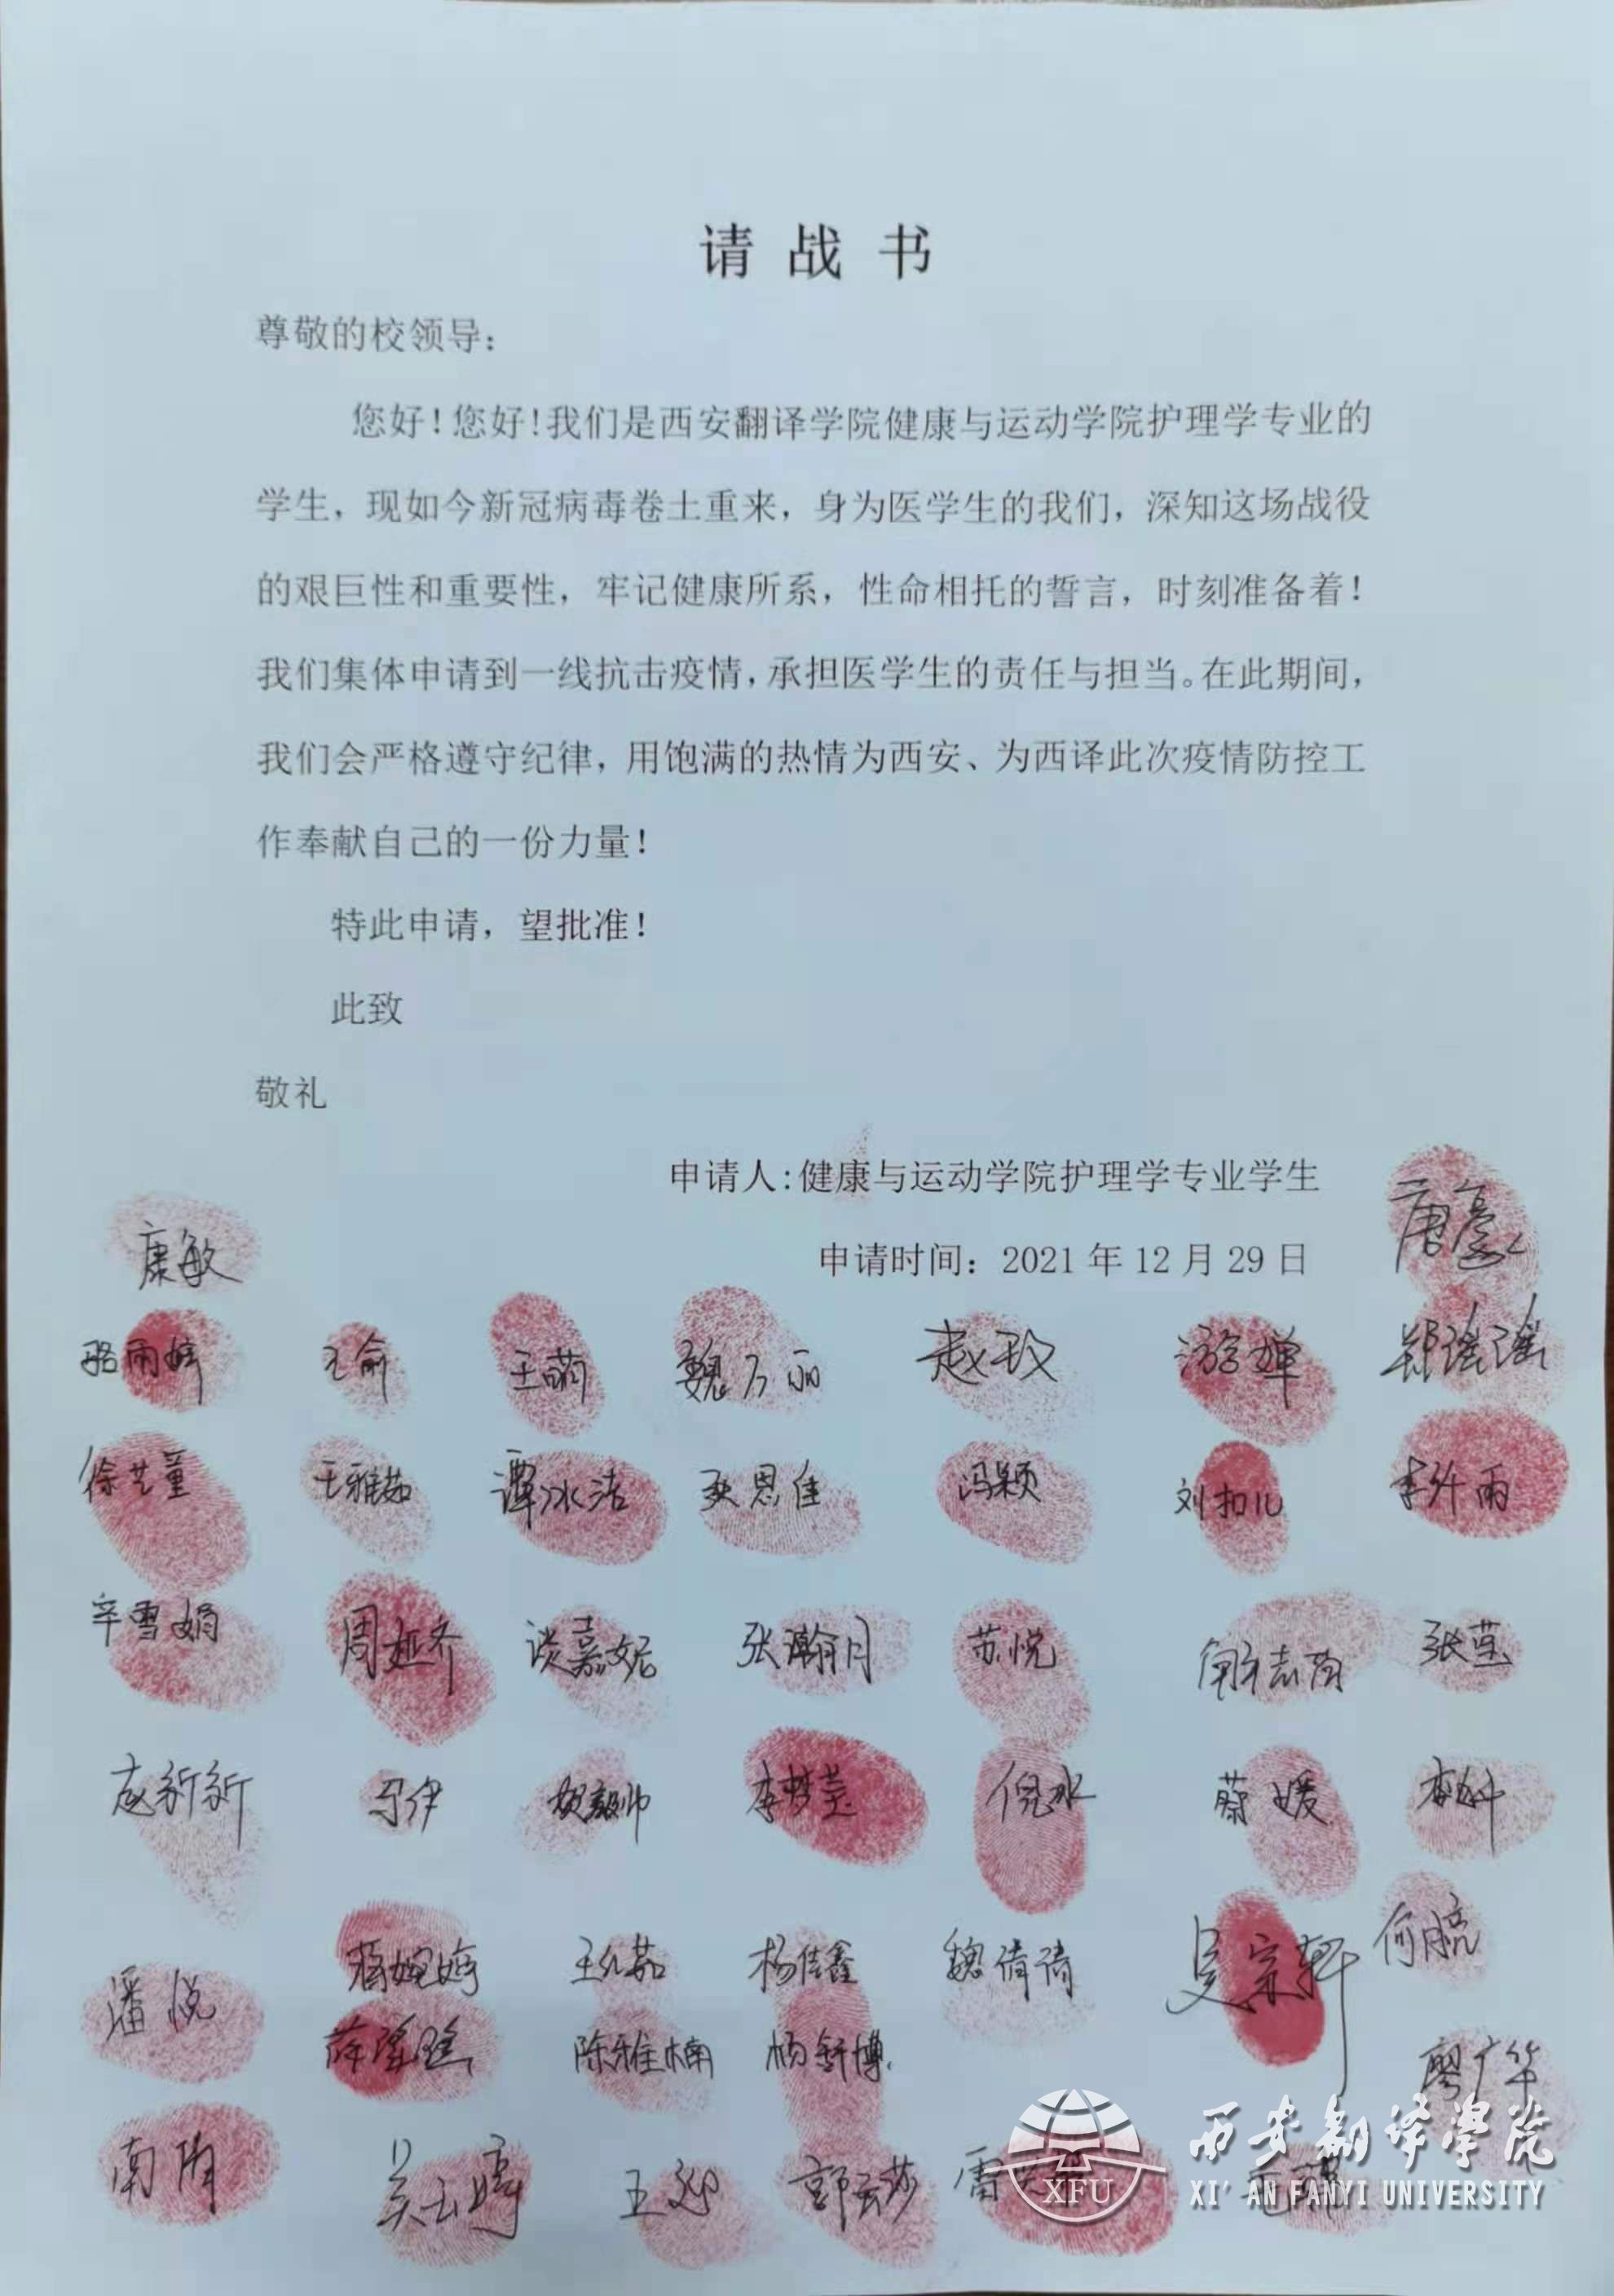 请战书
尊敬的校领导：
您好！您好！我们是西安翻译学院健康与运动学院护理学专业的
学生，现如今新冠病毒卷土重来，身为医学生的我们，深知这场战役
的艰巨性和重要性，牢记健康所系，性命相托的誓言，时刻准备着！
我们集体申请到一线抗击疫情，承担医学生的责任与担当。在此期间，
我们会严格遵守纪律，用饱满的热情为西安、为西译此次疫情防控工
作奉献自己的一份力量！
特此申请，望批准！
此致
敬礼
申请人：健康与运动学院护理学专业学生
申请时间：2021年12月29日
康敏 唐豪
骆雨婷 王俞 王萌 魏万丽 赵玫 潞婵 郑瑶瑶
徐艺童 王雅茹 谭冰洁 耿恩佳 冯颖 刘扣儿
辛雪娟 周娅齐 谈嘉妮 张瀚月 苏悦 张莹
赵新新 马伊 贺毅帅 李梦莹 倪水 蔡媛
潘悦 王允茹 杨佳鑫 魏倩倩 吴宗轩 何航
陈雅楠 杨舒博 廖广华
南 吴玉婷 王 郭云莎 雷
西安翻译学院
XFU
XI'AN FANYI UNIVERSITY